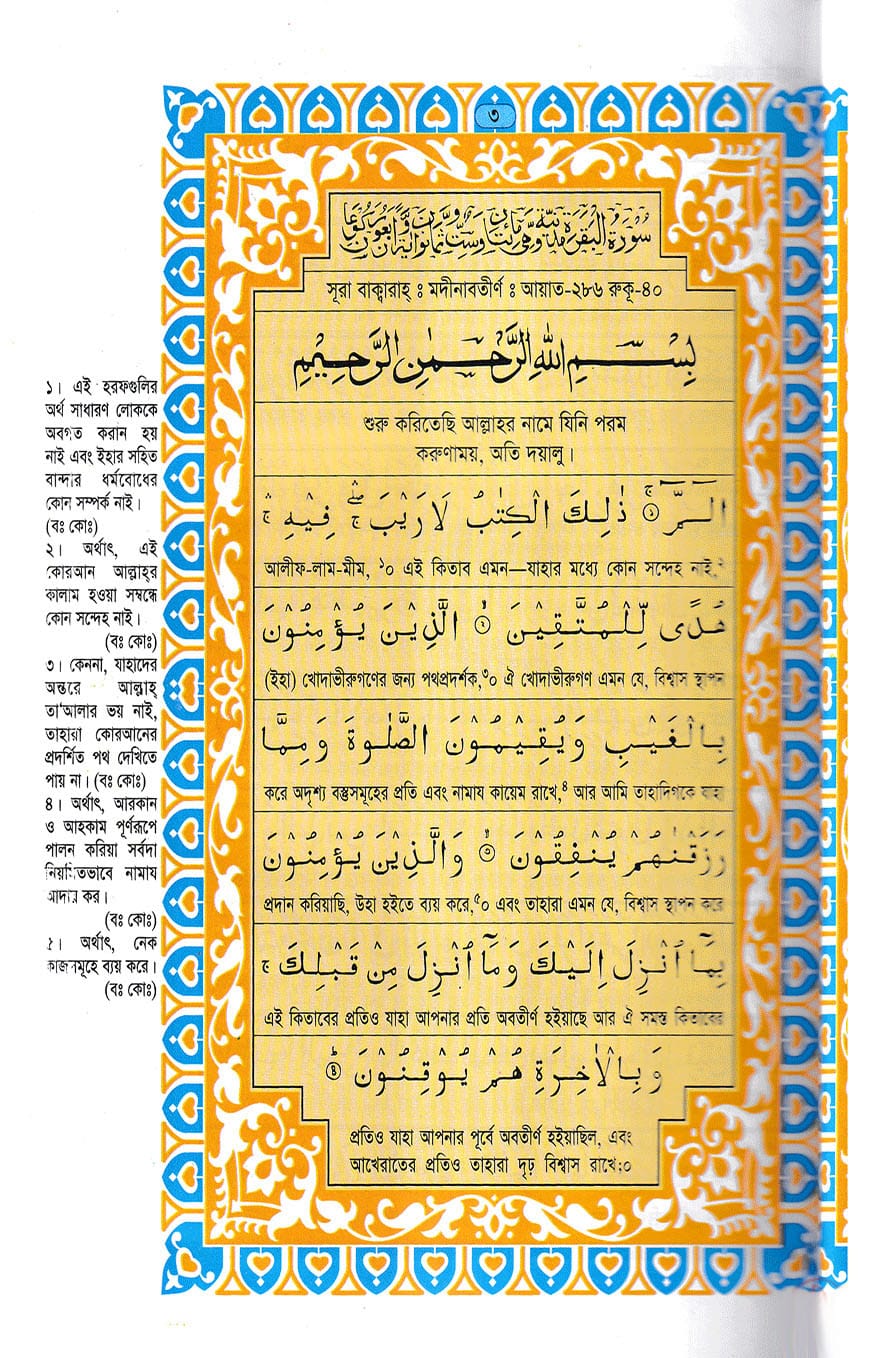 ৩
سُوْرَةُ الْبَقَرَةِ مَدَنِيَّةٌ وَّهِيَ مِائَتَانِ وَسِتٌّ وَّثَمَانُوْنَ اٰيَةً وَّاَرْبَعُوْنَ رُكُوْعًا
সূরা বাক্বারাহ্ ঃ মদীনাবতীর্ণ ঃ আয়াত-২৮৬ রুকূ-৪০
بِسْمِ اللهِ الرَّحْمٰنِ الرَّحِيْمِ
শুরু করিতেছি আল্লাহর নামে যিনি পরম
করুণাময়, অতি দয়ালু।
الٓـمّٓ ۚ﴿۱﴾ ذٰلِكَ الْكِتٰبُ لَا رَيْبَ ۛۖۚ فِيْهِ ۛۚ
আলীফ-লাম-মীম, ১০ এই কিতাব এমন—যাহার মধ্যে কোন সন্দেহ নাই,২
هُدًى لِّلْمُتَّقِيْنَ ۙ﴿۲﴾ الَّذِيْنَ يُؤْمِنُوْنَ
(ইহা) খোদাভীরুগণের জন্য পথপ্রদর্শক,৩০ ঐ খোদাভীরুগণ এমন যে, বিশ্বাস স্থাপন
بِالْغَيْبِ وَيُقِيْمُوْنَ الصَّلٰوةَ وَمِمَّا
করে অদৃশ্য বস্তুসমূহের প্রতি এবং নামায কায়েম রাখে,৪ আর আমি তাহাদিগকে যাহা
رَزَقْنٰهُمْ يُنْفِقُوْنَ ۙ﴿۳﴾ وَالَّذِيْنَ يُؤْمِنُوْنَ
প্রদান করিয়াছি, উহা হইতে ব্যয় করে,৫০ এবং তাহারা এমন যে, বিশ্বাস স্থাপন করে
بِمَاۤ اُنْزِلَ اِلَيْكَ وَمَاۤ اُنْزِلَ مِنْ قَبْلِكَ ۚ
এই কিতাবের প্রতিও যাহা আপনার প্রতি অবতীর্ণ হইয়াছে আর ঐ সমস্ত কিতাবের
وَبِالْاٰخِرَةِ هُمْ يُوْقِنُوْنَ ؕ﴿۴﴾
প্রতিও যাহা আপনার পূর্বে অবতীর্ণ হইয়াছিল, এবং
আখেরাতের প্রতিও তাহারা দৃঢ় বিশ্বাস রাখে;০
১। এই হরফগুলির
অর্থ সাধারণ লোককে
অবগত করান হয়
নাই এবং ইহার সহিত
বান্দার ধর্মবোধের
কোন সম্পর্ক নাই।
(বঃ কোঃ)
২। অর্থাৎ, এই
কোরআন আল্লাহ্‌র
কালাম হওয়া সম্বন্ধে
কোন সন্দেহ নাই।
(বঃ কোঃ)
৩। কেননা, যাহাদের
অন্তরে আল্লাহ্
তা'আলার ভয় নাই,
তাহারা কোরআনের
প্রদর্শিত পথ দেখিতে
পায় না। (বঃ কোঃ)
৪। অর্থাৎ, আরকান
ও আহকাম পূর্ণরূপে
পালন করিয়া সর্বদা
নিয়মিতভাবে নামায
আদায় কর।
(বঃ কোঃ)
৫। অর্থাৎ, নেক
কাজসমূহে ব্যয় করে।
(বঃ কোঃ)